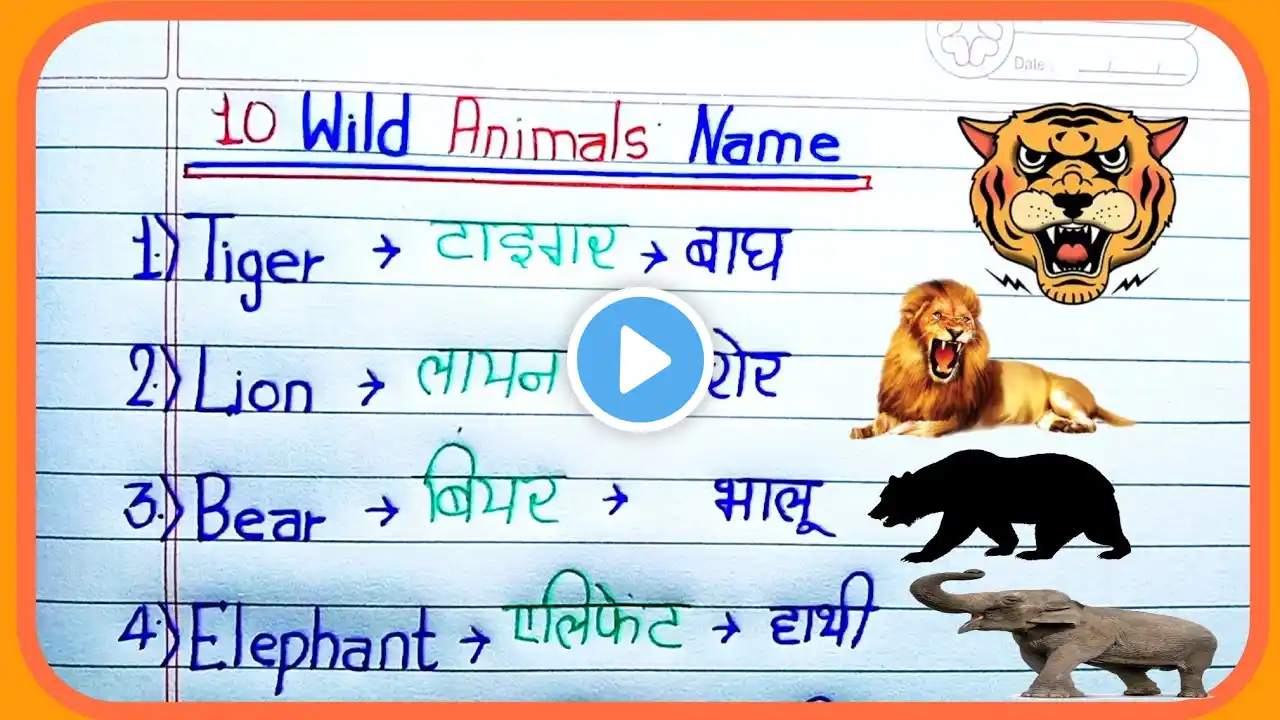 Date
10 Wild Animals Name
1) Tiger → टाइगर → बाघ
2) Lion → लायन शेर
3) Bear → बियर → भालू
4) Elephant → एलिफेंट → हाथी